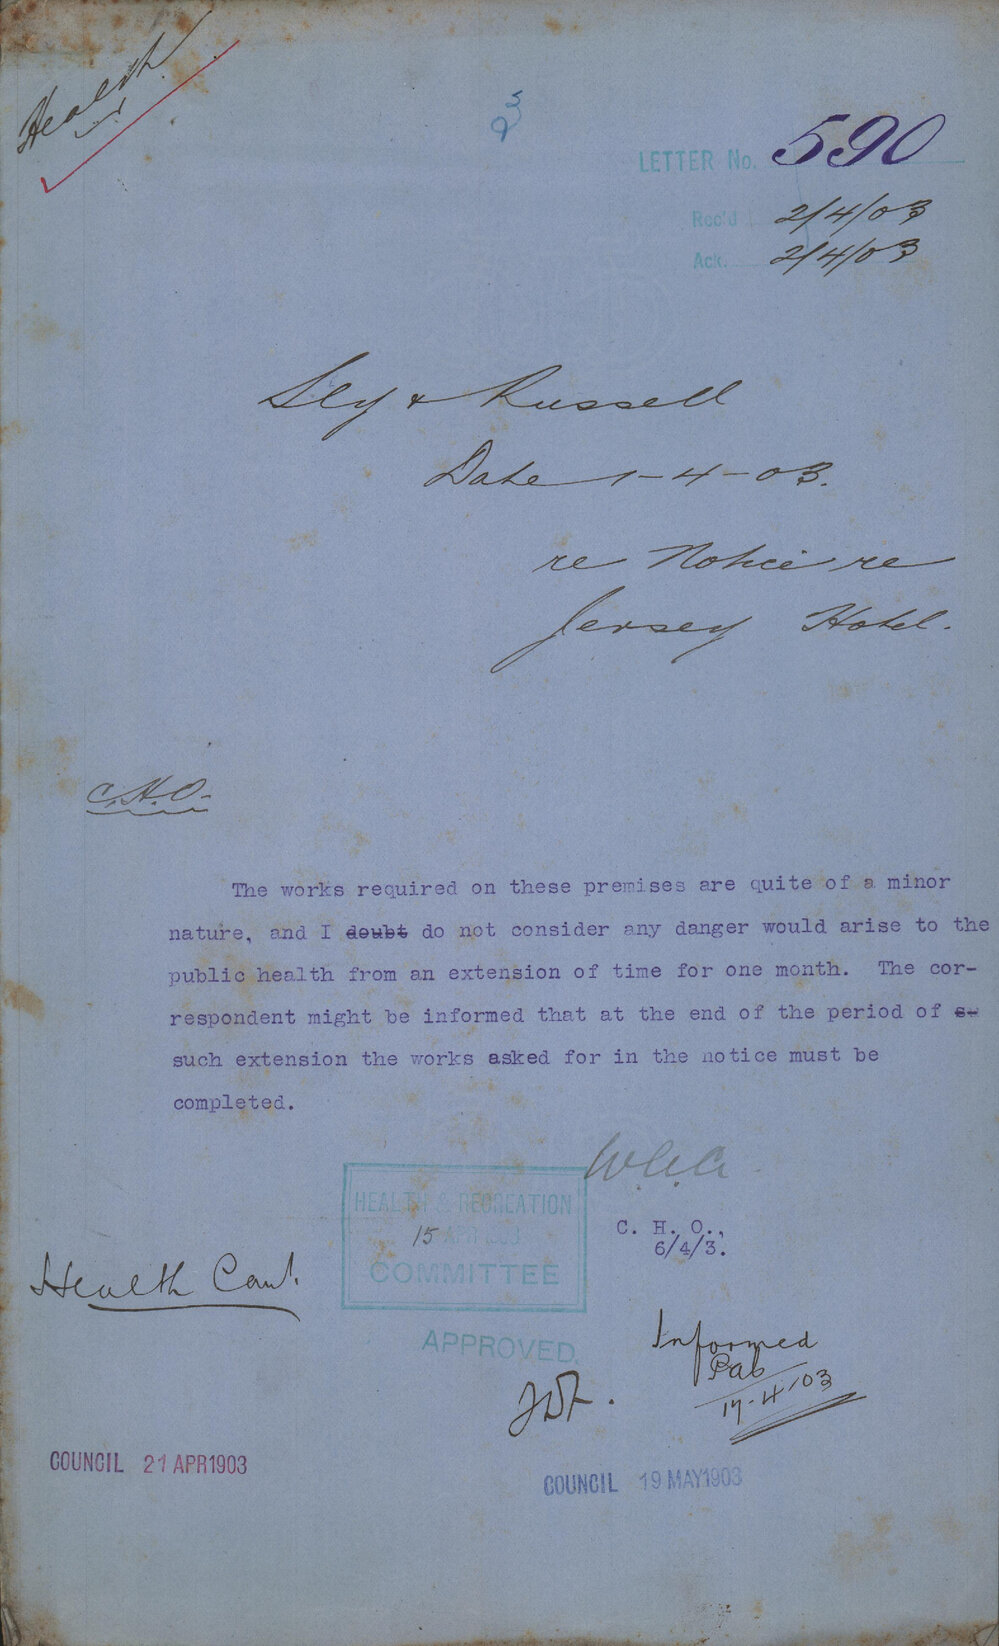 Health
LETTER No. 590
Rec'd 2/4/03
Ack. 2/4/03
Sly & Russell
Date 1-4-03.
re Notice re
Jersey Hotel.
C.H.O.
The works required on these premises are quite of a minor
nature, and I doubt do not consider any danger would arise to the
public health from an extension of time for one month. The cor-
respondent might be informed that at the end of the period of s-
such extension the works asked for in the notice must be
completed.
C. H. O.,
6/4/3.
HEALTH & RECREATION
15 APR 1903
COMMITTEE
Health Com.
APPROVED.
Informed
17-4-03
COUNCIL 21 APR 1903
COUNCIL 19 MAY 1903